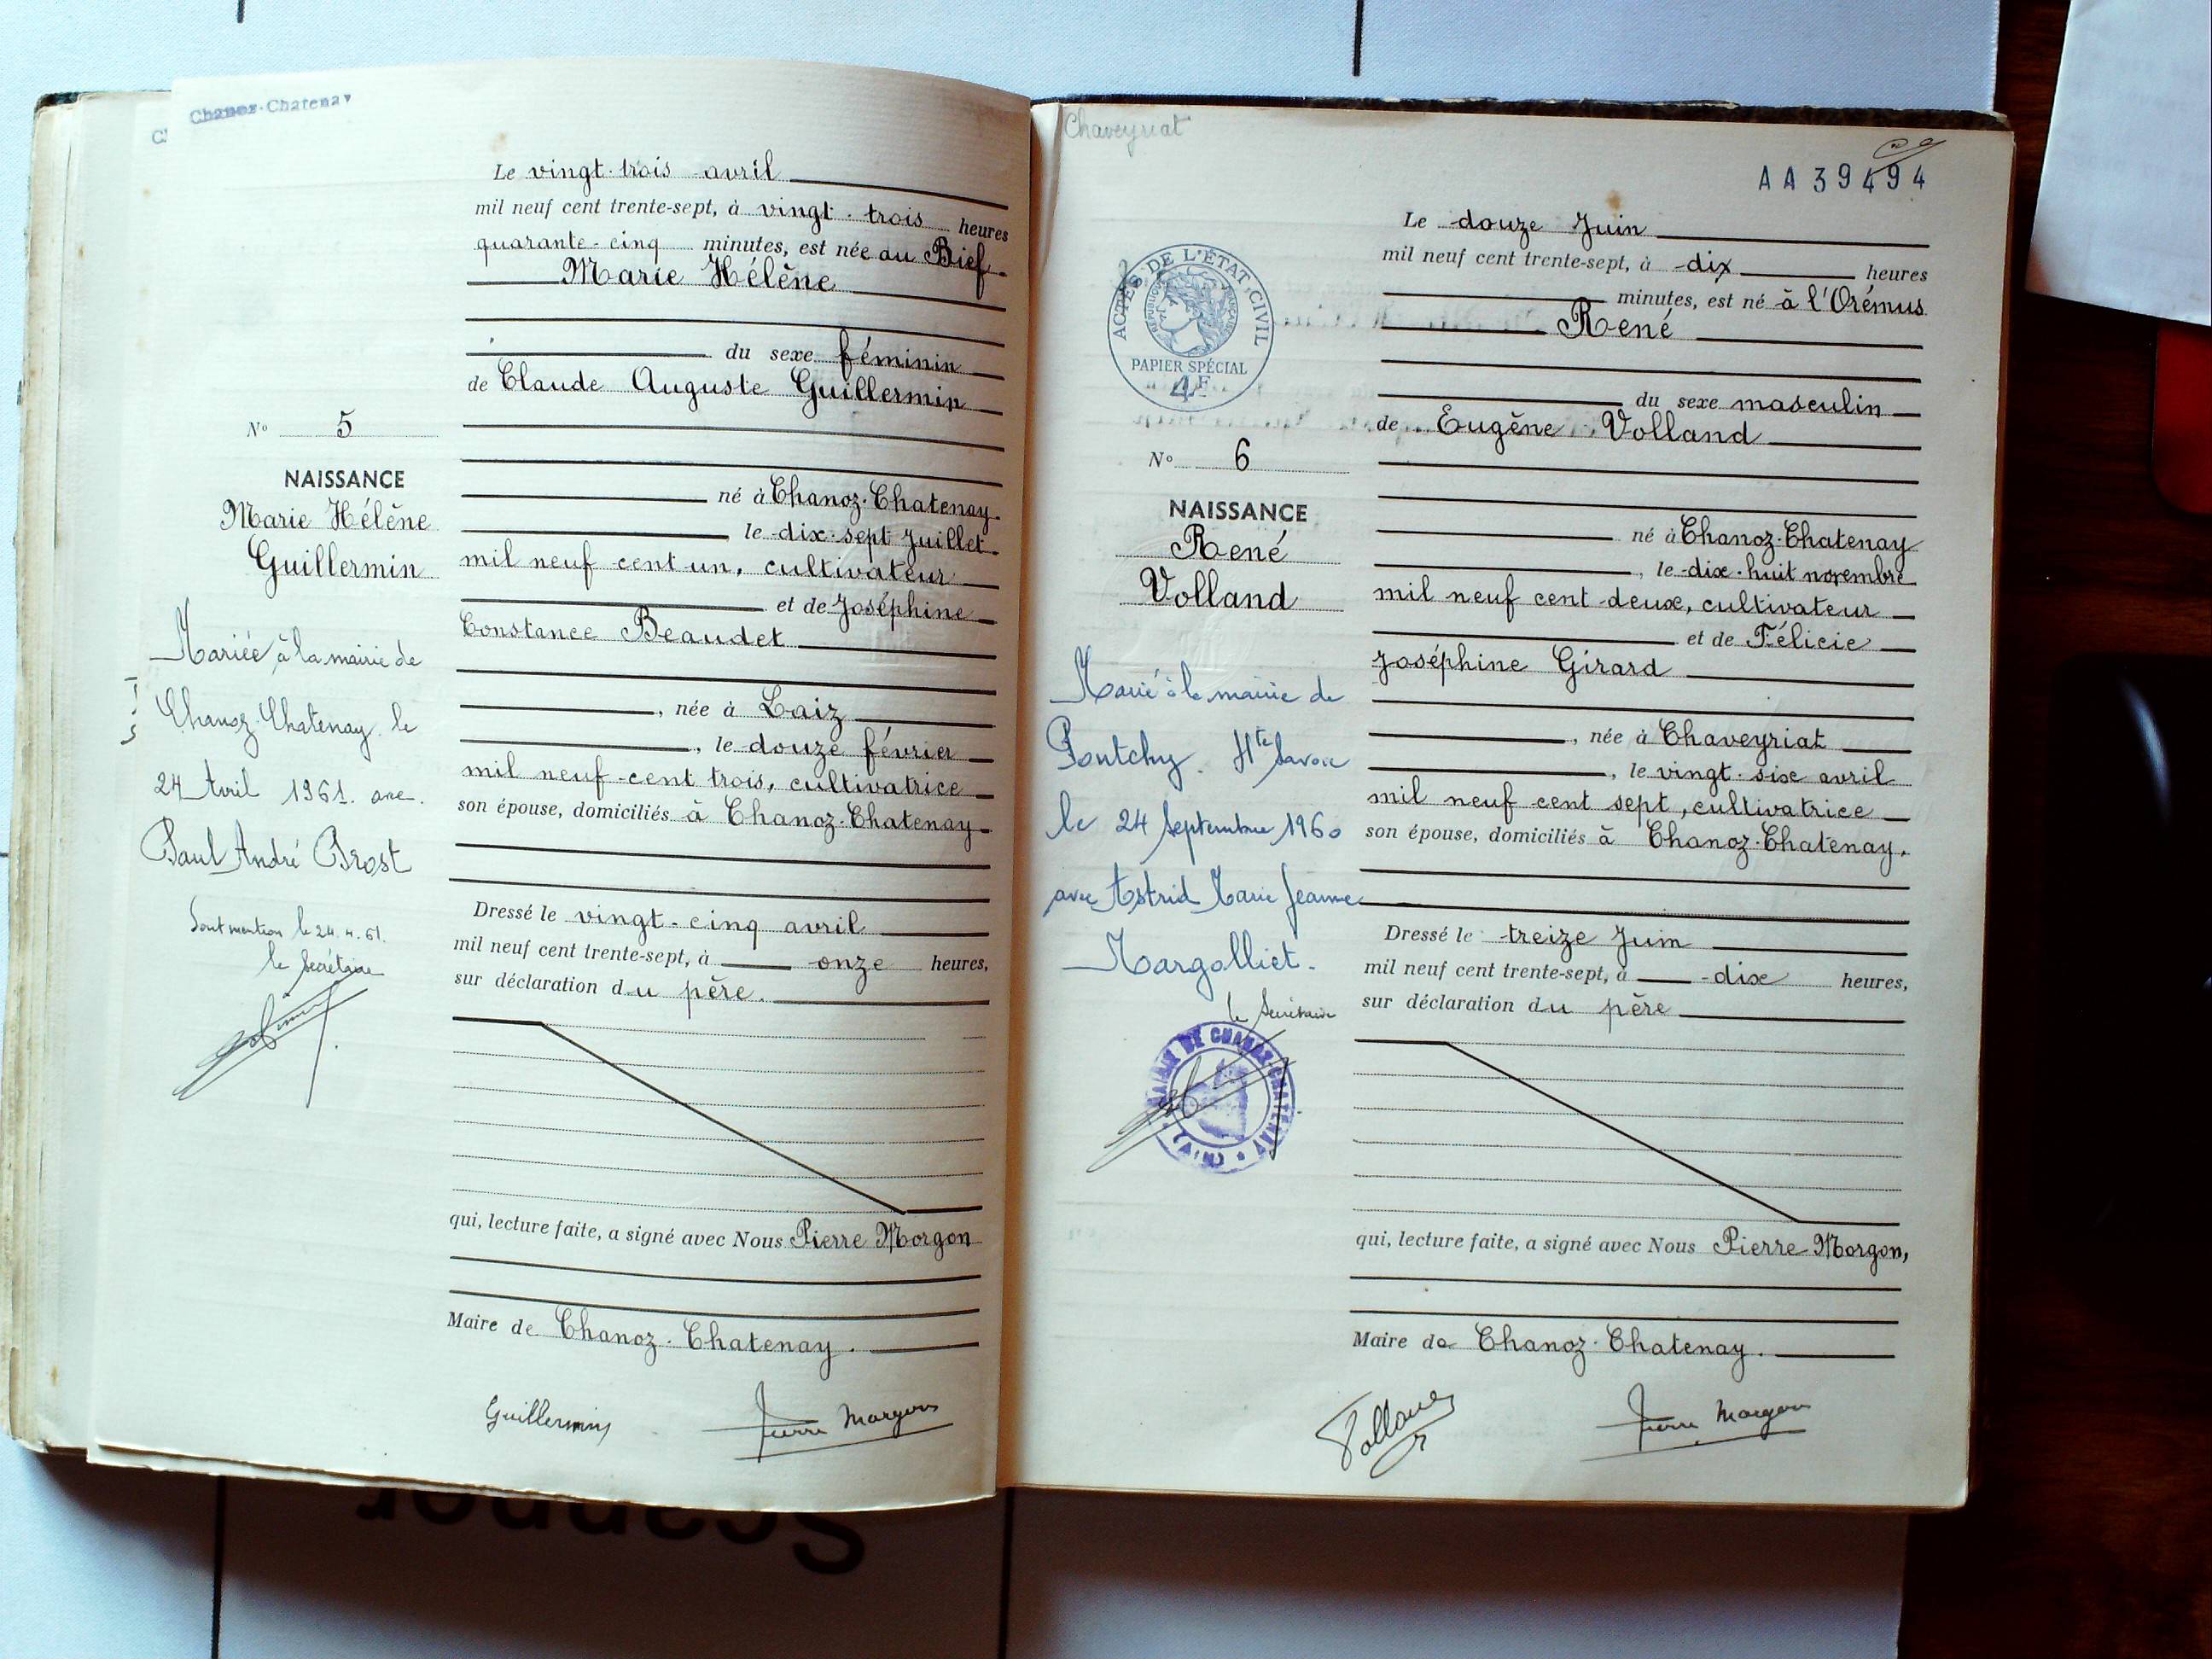 Chanoz-Chatenay
Le vingt-trois avril
mil neuf cent trente-sept, à vingt-trois heures
quarante-cinq minutes, est née au Bief
Marie Hélène
du sexe féminin
de Claude Auguste Guillermin
né à Chanoz-Chatenay
le dix-sept Juillet
mil neuf cent un, cultivateur
et de Joséphine
Constance Beaudet
, née à Laiz
, le douze février
mil neuf cent trois, cultivatrice
son épouse, domiciliés à Chanoz-Chatenay
Dressé le vingt-cinq avril
mil neuf cent trente-sept, à onze heures,
sur déclaration du père.
qui, lecture faite, a signé avec Nous Pierre Morgon
Maire de Chanoz-Chatenay.
Guillermin Pierre Morgon
N° 5
NAISSANCE
Marie Hélène
Guillermin
Mariée à la mairie de
Chanoz-Chatenay le
24 Avril 1961. avec
Paul André Prost
mention le 24.4.61.
le Secrétaire
Chaveyriat
AA 39494
Le douze Juin
mil neuf cent trente-sept, à dix heures
minutes, est né à l'Orémus
René
du sexe masculin
de Eugène Volland
né à Chanoz-Chatenay
, le dix-huit novembre
mil neuf cent deux, cultivateur
et de Félicie
Joséphine Girard
, née à Chaveyriat
, le vingt-six avril
mil neuf cent sept, cultivatrice
son épouse, domiciliés à Chanoz-Chatenay.
Dressé le treize Juin
mil neuf cent trente-sept, à dix heures,
sur déclaration du père
qui, lecture faite, a signé avec Nous Pierre Morgon,
Maire de Chanoz-Chatenay.
Volland Pierre Morgon
ACTES DE L'ÉTAT CIVIL
RÉPUBLIQUE FRANÇAISE
PAPIER SPÉCIAL
4F
N° 6
NAISSANCE
René
Volland
Marié à la mairie de
Pontchy. Hte Savoie
le 24 Septembre 1960
avec Astrid Marie Jeanne
Margolliet.
le Secrétaire
MAIRIE DE CHANOZ-CHATENAY
(AIN)
Scanner